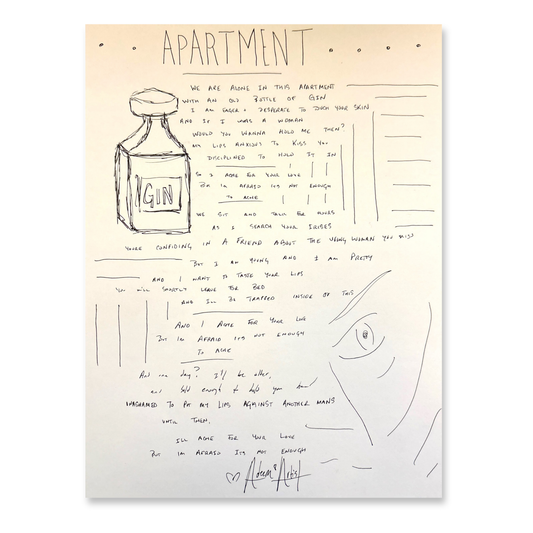 APARTMENT
WE ARE ALONE IN THIS APARTMENT
WITH AN OLD BOTTLE OF GIN
I AM EAGER & DESPERATE TO TOUCH YOUR SKIN
AND IF I WAS A WOMAN
WOULD YOU WANNA HOLD ME THEN?
MY LIPS ANXIOUS TO KISS YOU
DISCIPLINED TO HOLD IT IN
GIN
SO I ACHE FOR YOUR LOVE
BUT IM AFRAID ITS NOT ENOUGH
TO ACHE
WE SIT AND TALK FOR HOURS
AS I SEARCH YOUR IRISES
YOURE CONFIDING IN A FRIEND ABOUT THE YOUNG WOMAN YOU MISS
BUT I AM YOUNG AND I AM PRETTY
AND I WANT TO TASTE YOUR LIPS
YOU WILL SHORTLY LEAVE FOR BED
AND ILL BE TRAPPED INSIDE OF THIS
AND I ACHE FOR YOUR LOVE
BUT IM AFRAID ITS NOT ENOUGH
TO ACHE
And one day? I'll be older,
and bold enough to hold you down
UNASHAMED TO PUT MY LIPS AGAINST ANOTHER MANS
UNTIL THEN,
ILL ACHE FOR YOUR LOVE
BUT IM AFRAID ITS NOT ENOUGH